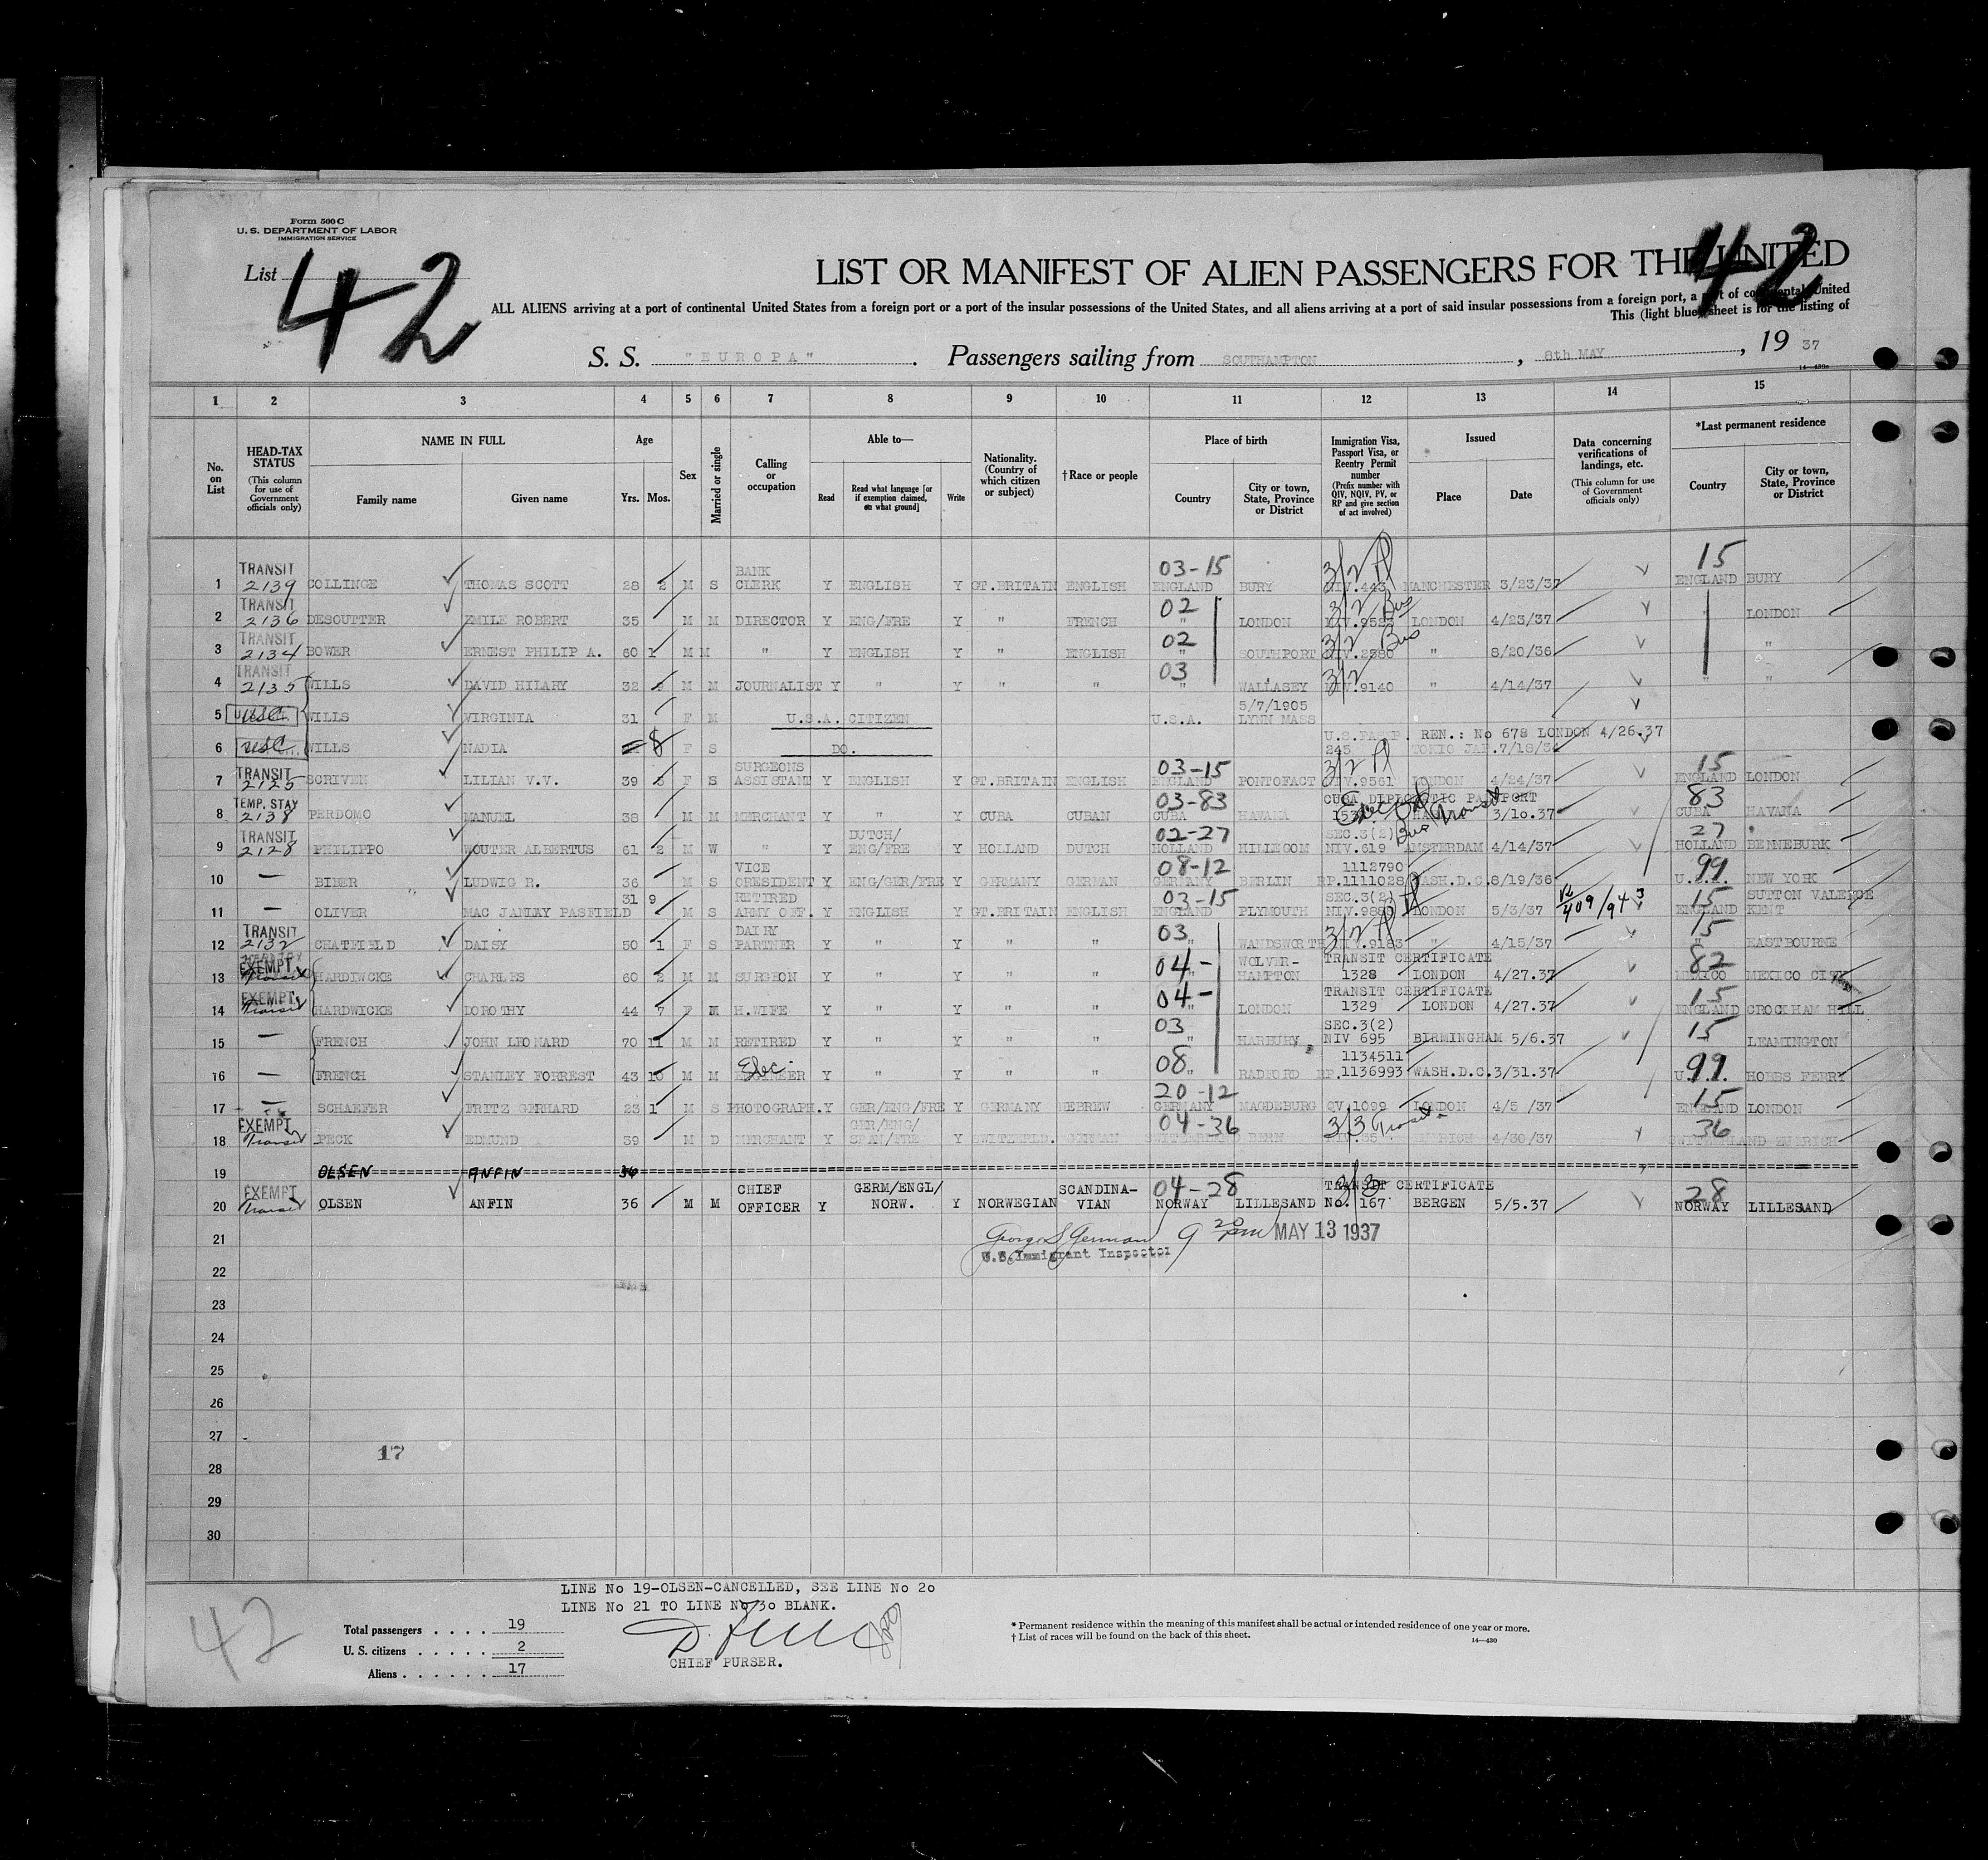 Form 500 C
U. S. DEPARTMENT OF LABOR
IMMIGRATION SERVICE
List 42
42
LIST OR MANIFEST OF ALIEN PASSENGERS FOR THE UNITED
ALL ALIENS arriving at a port of continental United States from a foreign port or a port of the insular possessions of the United States, and all aliens arriving at a port of said insular possessions from a foreign port, a port of continental United
This (light blue) sheet is for the listing of
S. S. "EUROPA". Passengers sailing from SOUTHAMPTON, 8th MAY, 19 37
14—430
1 2 3 4 5 6 7 8 9 10 11 12 13 14 15
No. on List
HEAD-TAX STATUS (This column for use of Government officials only)
NAME IN FULL Family name Given name
Age Yrs. Mos.
Sex
Married or single
Calling or occupation
Able to— Read Read what language [or if exemption claimed, on what ground] Write
Nationality. (Country of which citizen or subject)
†Race or people
Place of birth Country City or town, State, Province or District
Immigration Visa, Passport Visa, or Reentry Permit number (Prefix number with QIV, NQIV, PV, or RP and give section of act involved)
Issued Place Date
Data concerning verifications of landings, etc. (This column for use of Government officials only)
*Last permanent residence Country City or town, State, Province or District
1 TRANSIT 2139 COLLINGE THOMAS SCOTT 28 2 M S BANK CLERK Y ENGLISH Y GT.BRITAIN ENGLISH 03-15 ENGLAND BURY 3/2 NIV.443 MANCHESTER 3/23/37 15 ENGLAND BURY
2 TRANSIT 2136 DESOUTTER EMILE ROBERT 35 M M DIRECTOR Y ENG/FRE Y " FRENCH 02 " LONDON 3/2 Bus LONDON 4/23/37 " LONDON
3 TRANSIT 2134 BOWER ERNEST PHILIP A. 60 1 M M " Y ENGLISH Y " ENGLISH 02 " SOUTHPORT 3/2 Bus NIV.2380 " 8/20/36 "
4 TRANSIT 2135 WILLS DAVID HILARY 32 M M JOURNALIST Y " Y " " 03 " WALLASEY 3/2 NIV.9140 " 4/14/37 " "
5 USC WILLS VIRGINIA 31 F M U.S.A. CITIZEN U.S.A. 5/7/1905 LYNN MASS
6 USC WILLS NADIA 8 F S DO. U.S.PASP. REN.: No 678 LONDON 4/26.37 245 TOKIO JAP.
7 TRANSIT 2125 SCRIVEN LILIAN V.V. 39 F S SURGEONS ASSISTANT Y ENGLISH Y GT.BRITAIN ENGLISH 03-15 ENGLAND PONTOFACT 3/2 NIV.9561 LONDON 4/24/37 15 ENGLAND LONDON
8 TEMP. STAY 2138 PERDOMO MANUEL 38 M M MERCHANT Y " Y CUBA CUBAN 03-83 CUBA HAVANA CUBA DIPLOMATIC PASSPORT Transit 3/10.37 83 CUBA HAVANA
9 TRANSIT 2128 PHILIPPO WOUTER ALBERTUS 61 2 M W " Y DUTCH/ ENG/FRE Y HOLLAND DUTCH 02-27 HOLLAND HILLEGOM SEC.3(2) Bus NIV.619 AMSTERDAM 4/14/37 27 HOLLAND BENNEBURK
10 — BIBER LUDWIG R. 36 M S VICE PRESIDENT Y ENG/GER/FRE Y GERMANY GERMAN 08-12 GERMANY BERLIN 1112790 RP.1111028 WASH.D.C. 8/19/36 99 U.S.A. NEW YORK
11 — OLIVER MAC JANLEY PASFIELD 31 9 M S RETIRED ARMY OFF. Y ENGLISH Y GT.BRITAIN ENGLISH 03-15 ENGLAND PLYMOUTH SEC.3(2) LONDON 5/3/37 V2 409/943 15 ENGLAND SUTTON VALENCE KENT
12 TRANSIT 2132 CHATFIELD DAISY 50 1 F S DAIRY PARTNER Y " Y " " 03 " WANDSWORTH 3/2 NIV.9183 " 4/15/37 15 " EASTBOURNE
13 EXEMPT Transit HARDIWCKE CHARLES 60 2 M M SURGEON Y " Y " " 04- " WOLVER-HAMPTON TRANSIT CERTIFICATE 1328 LONDON 4/27.37 82 MEXICO MEXICO CITY
14 EXEMPT Transit HARDWICKE DOROTHY 44 7 F M H.WIFE Y " Y " " 04- " LONDON TRANSIT CERTIFICATE 1329 LONDON 4/27.37 15 ENGLAND CROCKHAM HILL
15 — FRENCH JOHN LEONARD 70 11 M M RETIRED Y " Y " " 03 " HARBURY SEC.3(2) NIV 695 BIRMINGHAM 5/6.37 15 " LEAMINGTON
16 — FRENCH STANLEY FORREST 43 10 M M Elec ENGINEER Y " Y " " 08 " RADFORD 1134511 RP.1136993 WASH.D.C. 3/31.37 99 U.S.A. HOBBS FERRY
17 — SCHAEFER FRITZ GERHARD 23 1 M S PHOTOGRAPH. Y GER/ENG/FRE Y GERMANY HEBREW 20-12 GERMANY MAGDEBURG QV.1099 LONDON 4/5 /37 15 ENGLAND LONDON
18 EXEMPT Transit PECK EDMUND 39 M D MERCHANT Y GER/ENG/ SPAN/FRE Y SWITZERLD. GERMAN 04-36 SWITZERLAND BERN 3/3 Transit ZURICH 4/30/37 36 SWITZERLAND ZURICH
19 OLSEN ANFIN 36
20 EXEMPT Transit OLSEN ANFIN 36 M M CHIEF OFFICER Y GERM/ENGL/ NORW. Y NORWEGIAN SCANDINA-VIAN 04-28 NORWAY LILLESAND 3/3 TRANSIT CERTIFICATE No. 167 BERGEN 5/5.37 28 NORWAY LILLESAND
21 George S German 9 20 pm MAY 13 1937
U.S. Immigrant Inspector
22
23
24
25
26
27
28
29
30
17
LINE No 19-OLSEN-CANCELLED, SEE LINE No 20
LINE No 21 TO LINE No 30 BLANK.
42
Total passengers . . . . 19
U. S. citizens . . . . . 2
Aliens . . . . . . 17
CHIEF PURSER.
* Permanent residence within the meaning of this manifest shall be actual or intended residence of one year or more.
† List of races will be found on the back of this sheet.
14—430